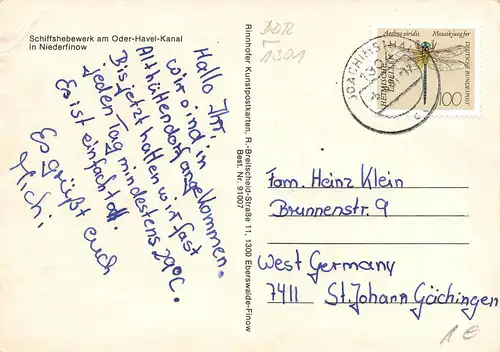 Schiffshebewerk am Oder-Havel-Kanal
in Niederfinow
Hallo Ihr,
wir sind in
Althüttendorf angekommen.
Bis jetzt hatten wir fast
jeden Tag mindestens 29°C.
Es ist einfach toll.
Es grüßt euch
Michi
Rimohofer Kunstpostkarten, R.-Breitscheid-Straße 11, 1300 Eberswalde-Finow
Best. Nr. 91007
DDR
1301
JOACHIMSTHAL
Aeshna viridis Mosaikjungfer
HEIMISCHE
LIBELLEN
DEUTSCHE BUNDESPOST
100
Fam. Heinz Klein
Brunnenstr. 9
West Germany
7411 St. Johann Gächingen
1 €